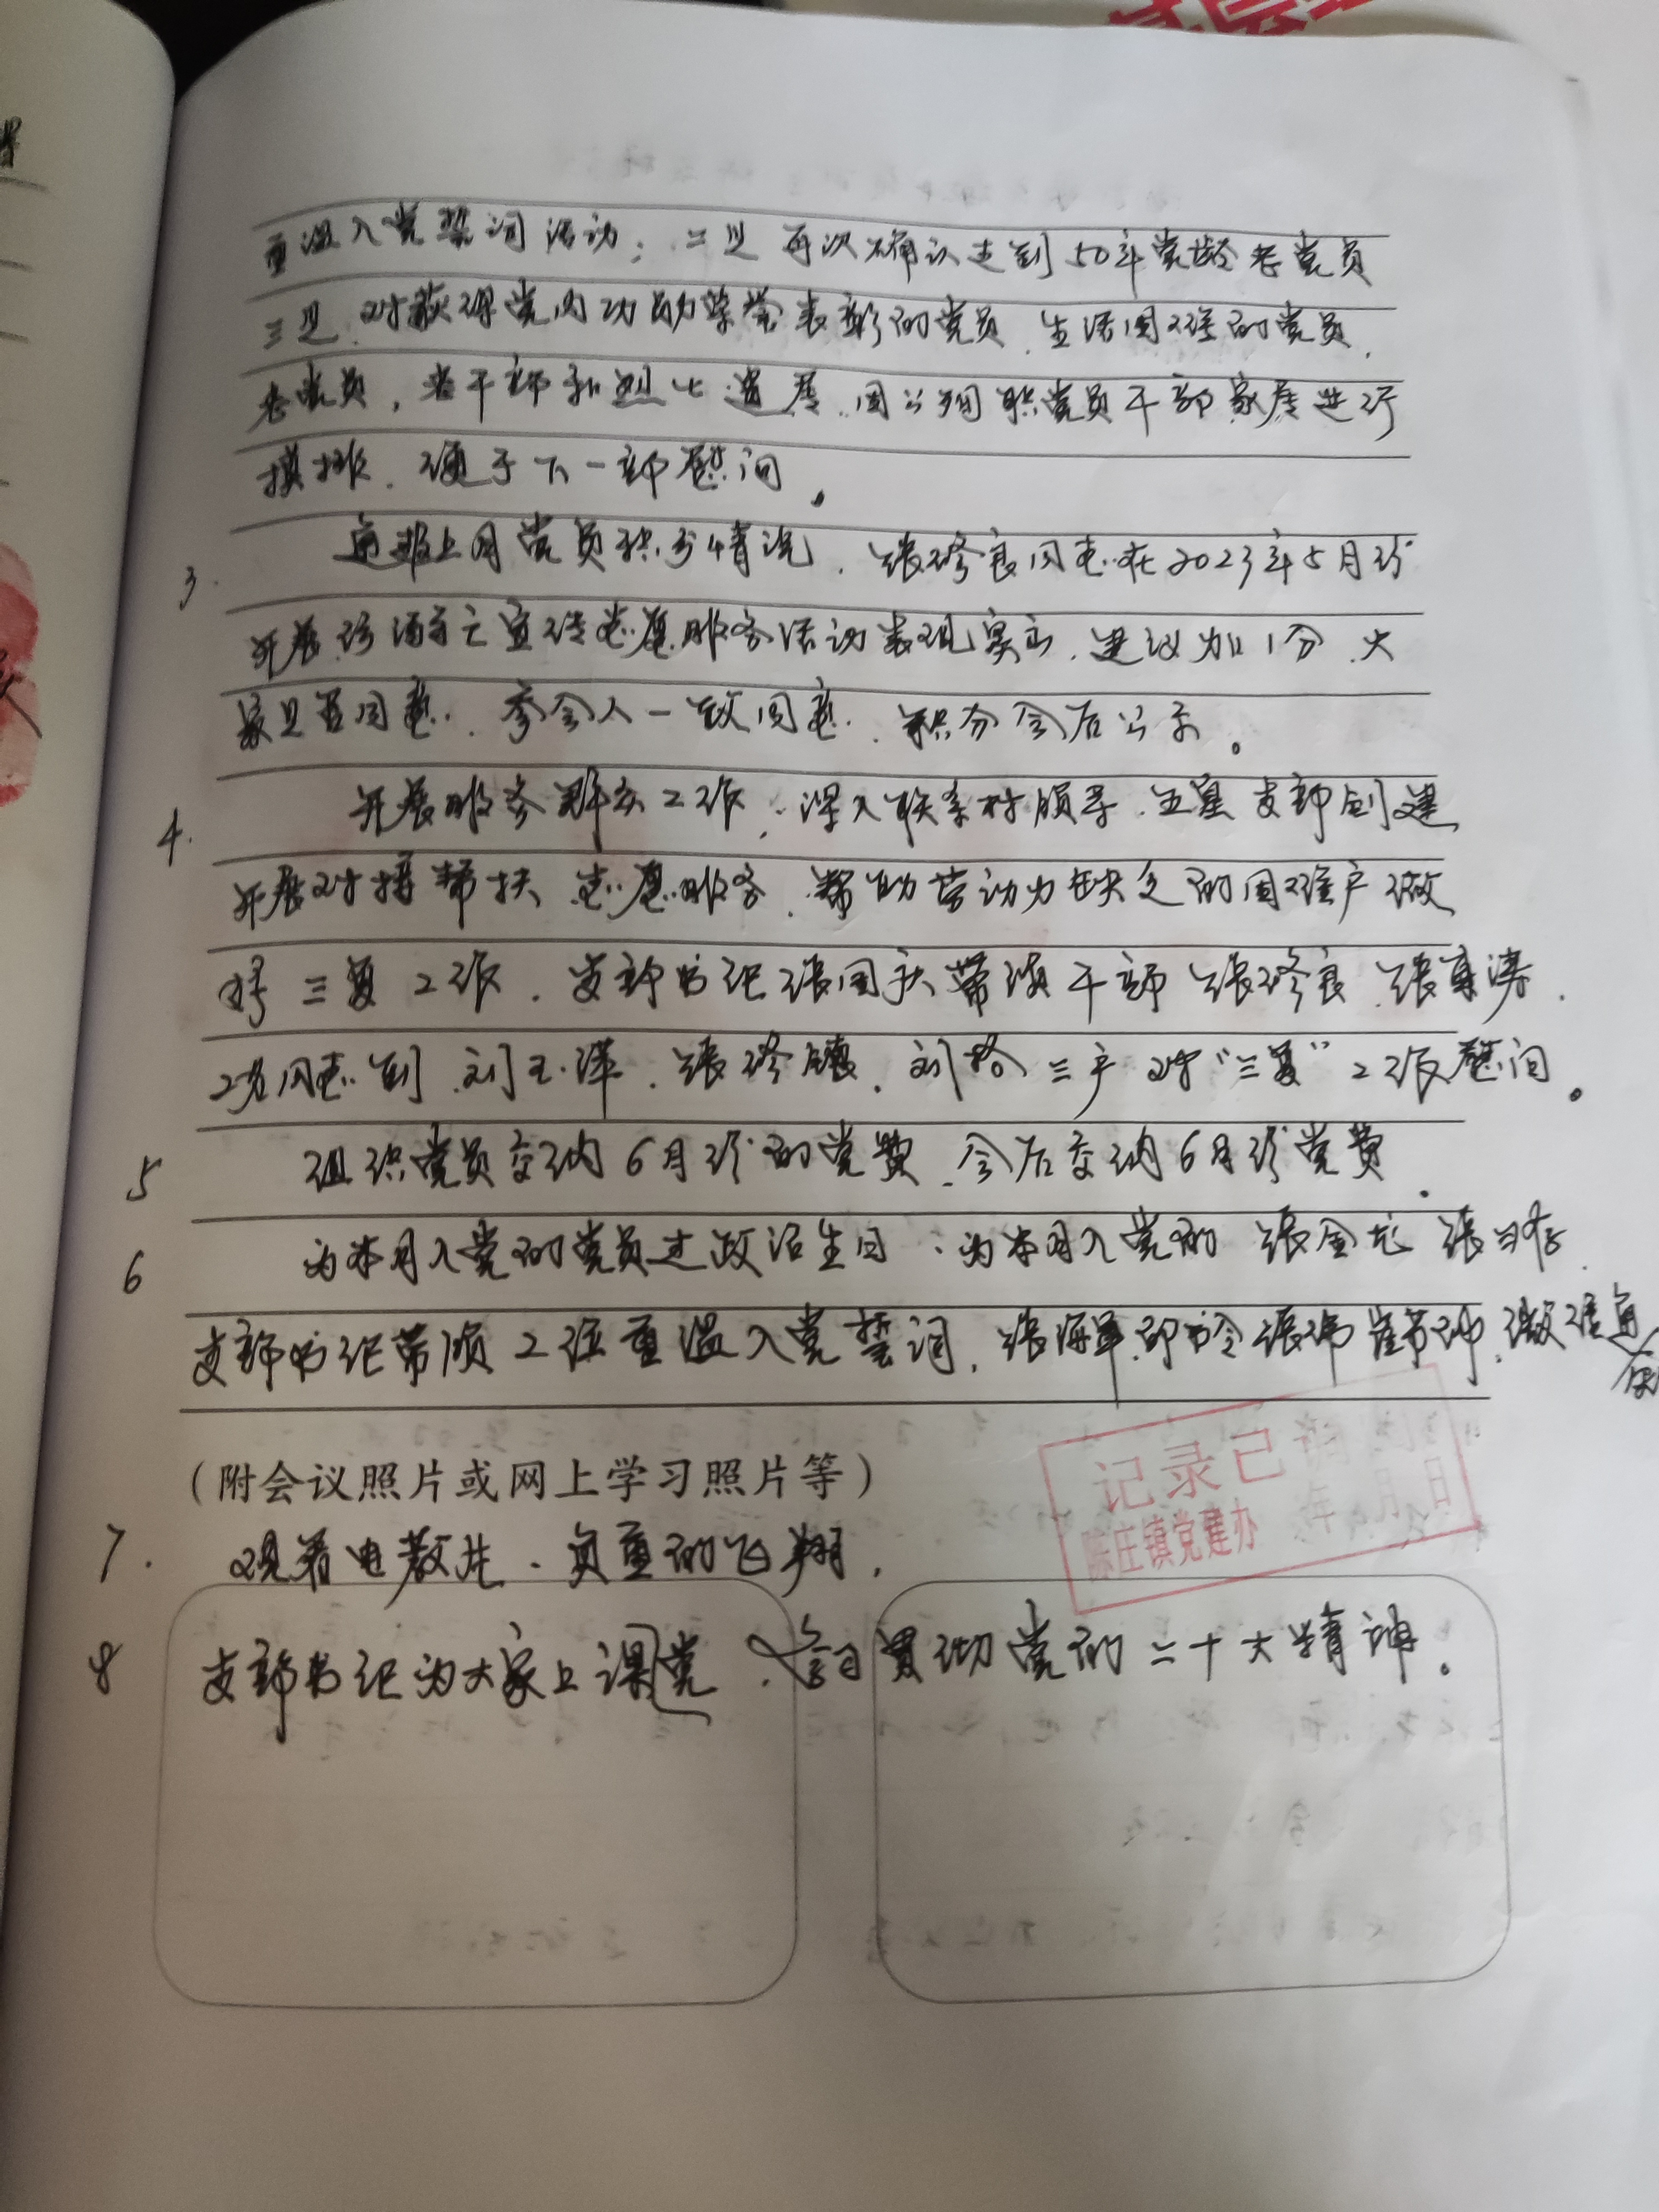 重温入党誓词活动；二是再次确认达到50年党龄老党员
三是、对获得党内功勋荣誉表彰的党员、生活困难的党员、
老党员，老干部和烈士遗属、因公殉职党员干部家属进行
摸排、便于下一部慰问。
3. 通报上月党员积分情况、张修良同志在2023年5月份
开展防溺亡宣传志愿服务活动表现突出、建议加1分、大
家是否同意、参会人一致同意、积分会后公示。
4. 开展服务群众工作、深入联系村领导、五星支部创建
开展对接帮扶志愿服务、帮助劳动力缺乏的困难户做
好三夏工作、支部书记张国庆带领干部张修良、张
2名同志到、刘玉泽、张修镇、刘 三户对“三夏”工作慰问。
5 组织党员交纳6月份的党费、会后交纳6月份党费.
6 为本月入党的党员过政治生日、为本月入党的 张金龙 张
支部书记带领2位重温入党誓词、张海军、 张 崔
(附会议照片或网上学习照片等)
记录已 年 月 日
陈庄镇党建办
7. 观看电教片、负重的飞翔，
8 支部书记为大家上课党、学习贯彻党的二十大精神。